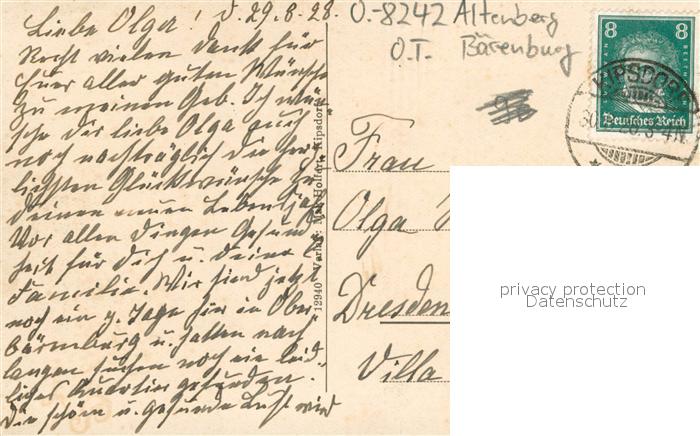 Liebe Olga! d. 29.8.28.
Recht vielen Dank für
Eure aller guten Wünsche
zu meinem Geb. Ich wün-
sche Dir liebe Olga auch
noch nachträglich die herz-
lichsten Glückwünsche zu
Deinem neuen Lebensjahr
Vor allen Dingen Gesund-
heit für Dich u. Deine l.
Familie. Wir sind jetzt
noch ein 9. Tage hier in Ober-
bärenburg u. hatten nach
langem suchen noch ein leid-
liches Quartier gefunden.
Die schöne u. gesunde Luft wird
O.-8242 Altenberg
O.T. Bärenburg
8 8
Deutsches Reich
KIPSDORF
12940 Verlag: Max Holfert, Kipsdorf
Frau
Olga
Dresden
Villa
privacy protection
Datenschutz